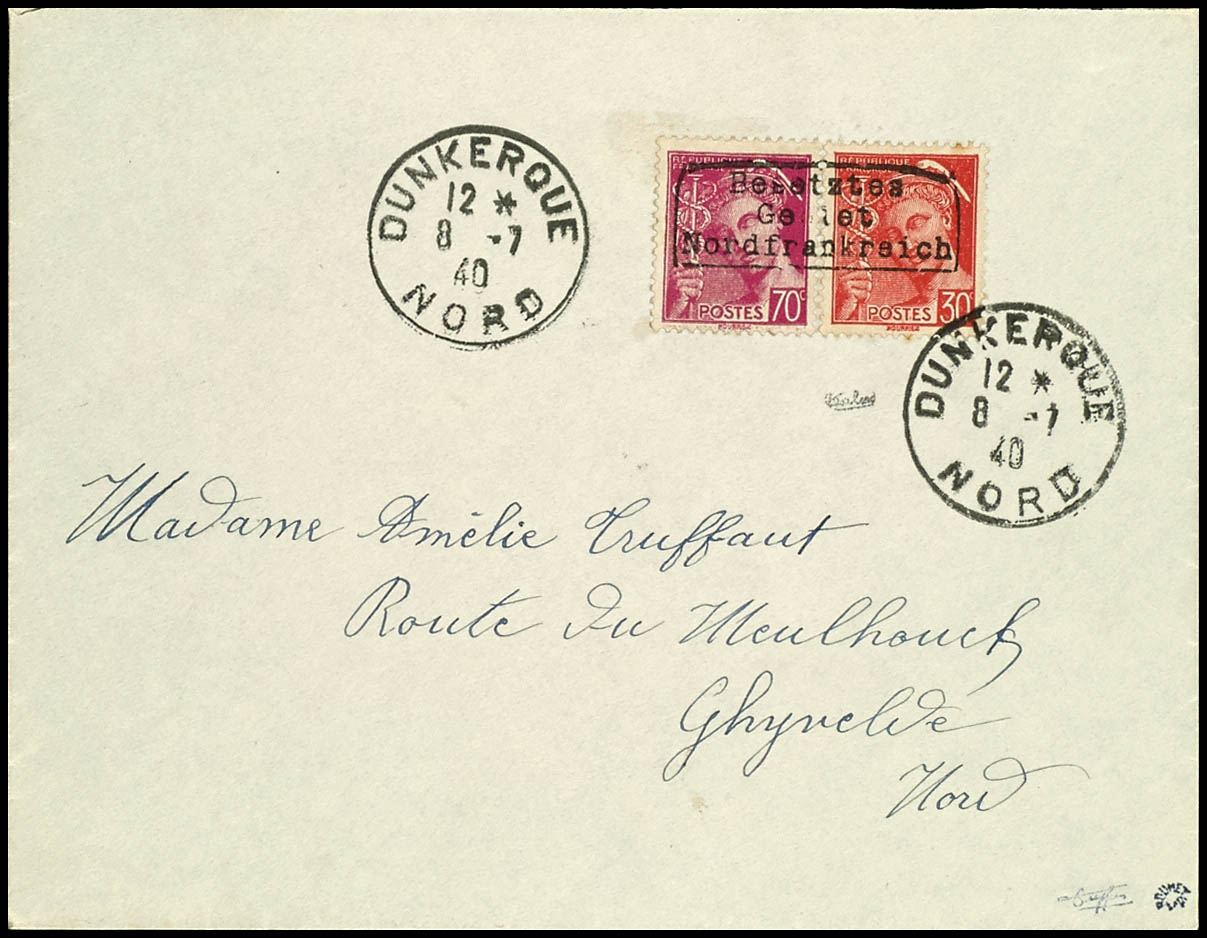 DUNKERQUE
12 *
8 -7
40
NORD
RÉPUBLIQUE
RÉPUBLIQUE
Besetztes
Gebiet
Nordfrankreich
POSTES 70c
POSTES 30c
DUNKERQUE
12 *
8 -7
40
NORD
Madame Amélie Truffaut
Route du Meulhouck
Ghyvelde
Nord